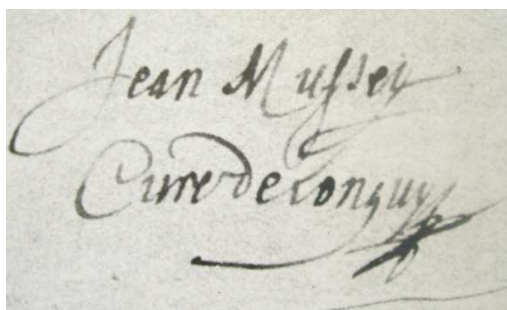 Jean Muſsey
Cure de longuy